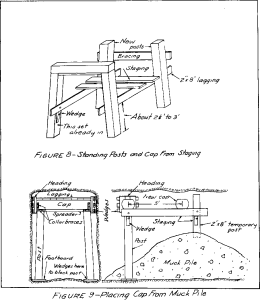 New
posts
Bracing
Staging
2"x8" lagging
Wedge
This set
already in
About 2½' to 3'
FIGURE 8-Standing Posts and Cap From Staging
Heading
Heading
Lagging
Cap
New cap
5'
Wedges
Spreader
Collar braces
Staging
2"x8" temporary
post
Wedge
Post
Post
Footboard
Wedges here
to block post
Muck Pile
FIGURE 9-Placing Cap From Muck Pile